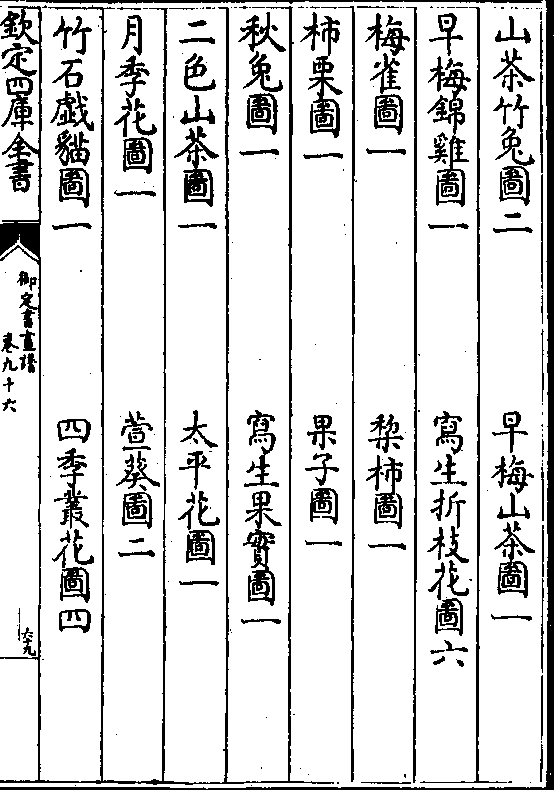 山茶竹兔圖二　早梅山茶圖一
早梅錦雞圖一　寫生折枝花圖六
梅雀圖一　棃柿圖一
柿栗圖一　果子圖一
秋兔圖一　寫生果實圖一
二色山茶圖一　太平花圖一
月季花圖一　萱葵圖二
竹石戯貓圖一　四季叢花圖四
欽定四庫全書
御定書畫譜
卷九十六
六十九